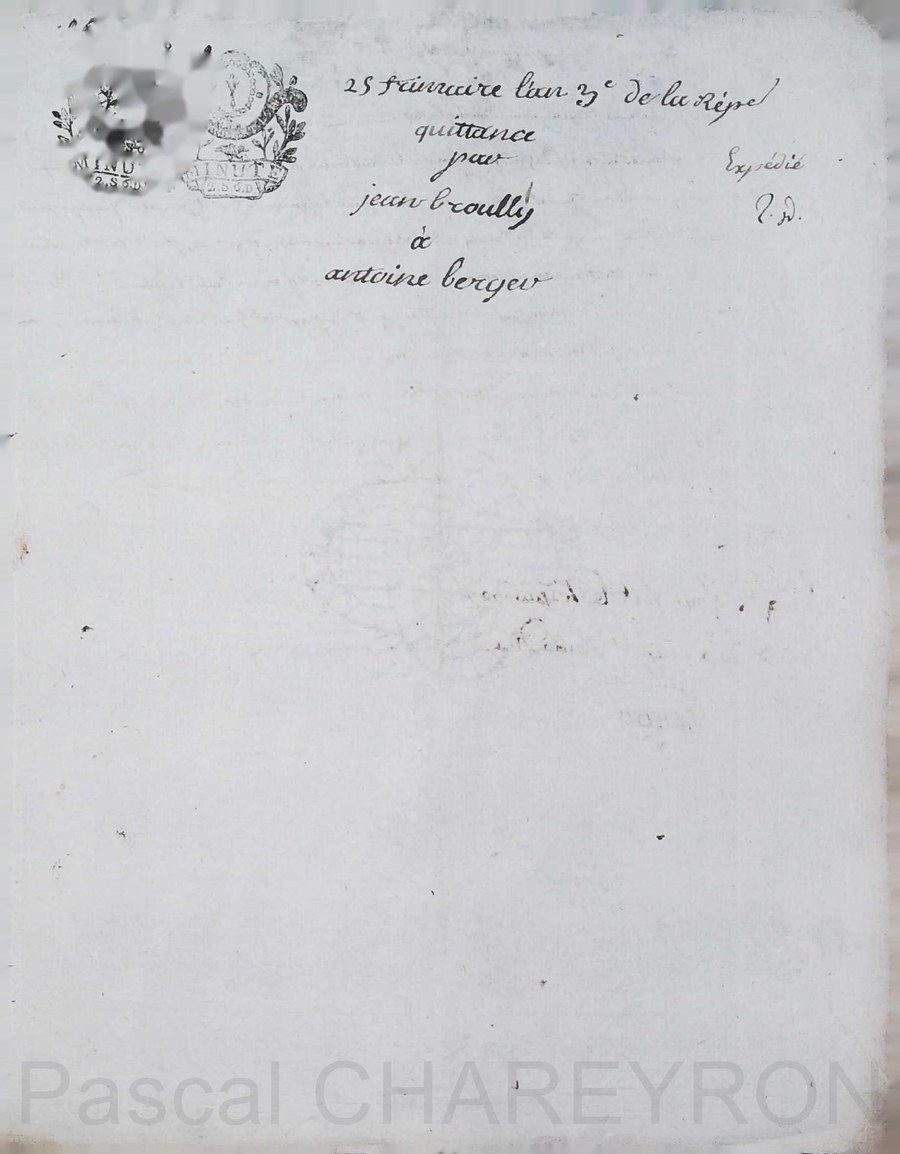 25 frimaire l'an 3e de la Répe
quittance
par
jean broully
à
antoine berger
Expédié
MINU
2.S 6.D
MINUTE
2.S 6.D
Pascal CHAREYRON